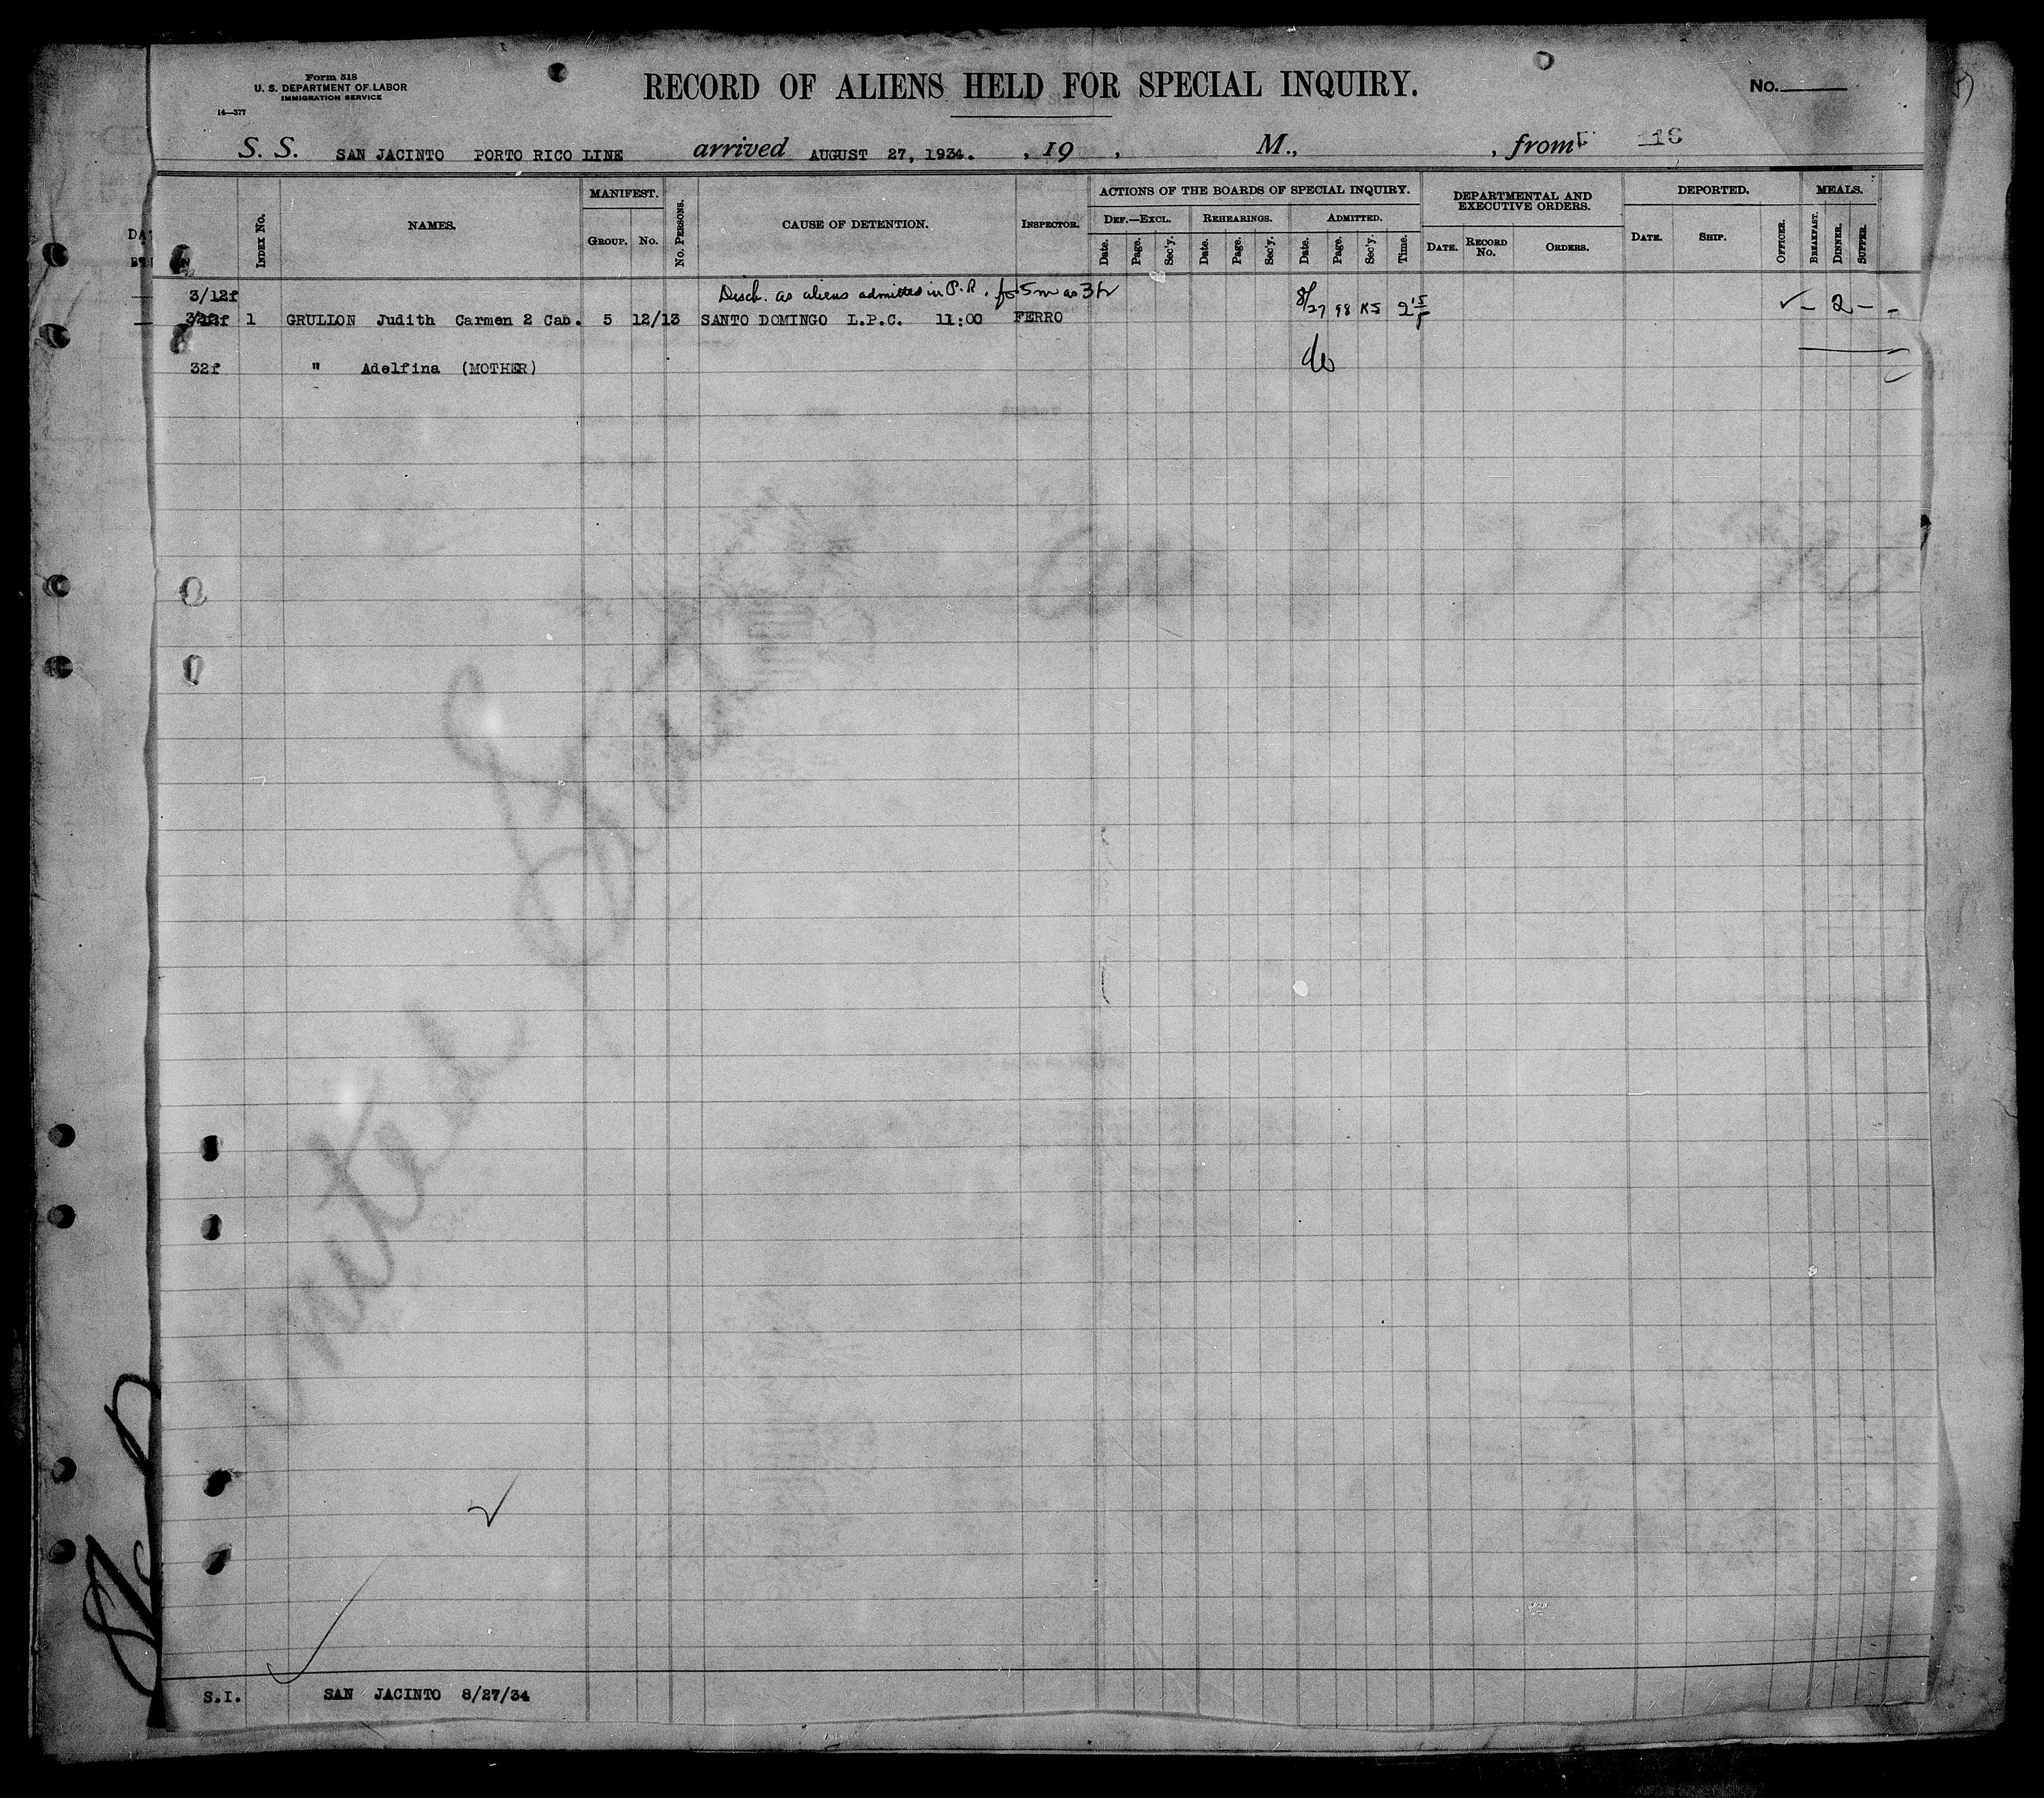 Form 518
U. S. DEPARTMENT OF LABOR
IMMIGRATION SERVICE
14—577
RECORD OF ALIENS HELD FOR SPECIAL INQUIRY.
No.
S. S. SAN JACINTO PORTO RICO LINE arrived AUGUST 27, 1934. , 19 , M., , from 116
INDEX No. NAMES. MANIFEST. GROUP. No. No. PERSONS. CAUSE OF DETENTION. INSPECTOR. ACTIONS OF THE BOARDS OF SPECIAL INQUIRY. DEPARTMENTAL AND EXECUTIVE ORDERS. DEPORTED. MEALS.
DEF.—EXCL. REHEARINGS. ADMITTED.
Date. Page. Sec'y. Date. Page. Sec'y. Date. Page. Sec'y. Time. DATE. RECORD No. ORDERS. DATE. SHIP. OFFICER. BREAKFAST. DINNER. SUPPER.
3/12f Disch. as aliens admitted in P.R. for 5m as 3(2)
1 GRULLON Judith Carmen 2 Cab. 5 12/13 SANTO DOMINGO L.P.C. 11:00 FERRO 8/27 98 KS 2 15 P ✓ – 2 – –
32f " Adelfina (MOTHER) do
United
S.I. SAN JACINTO 8/27/34